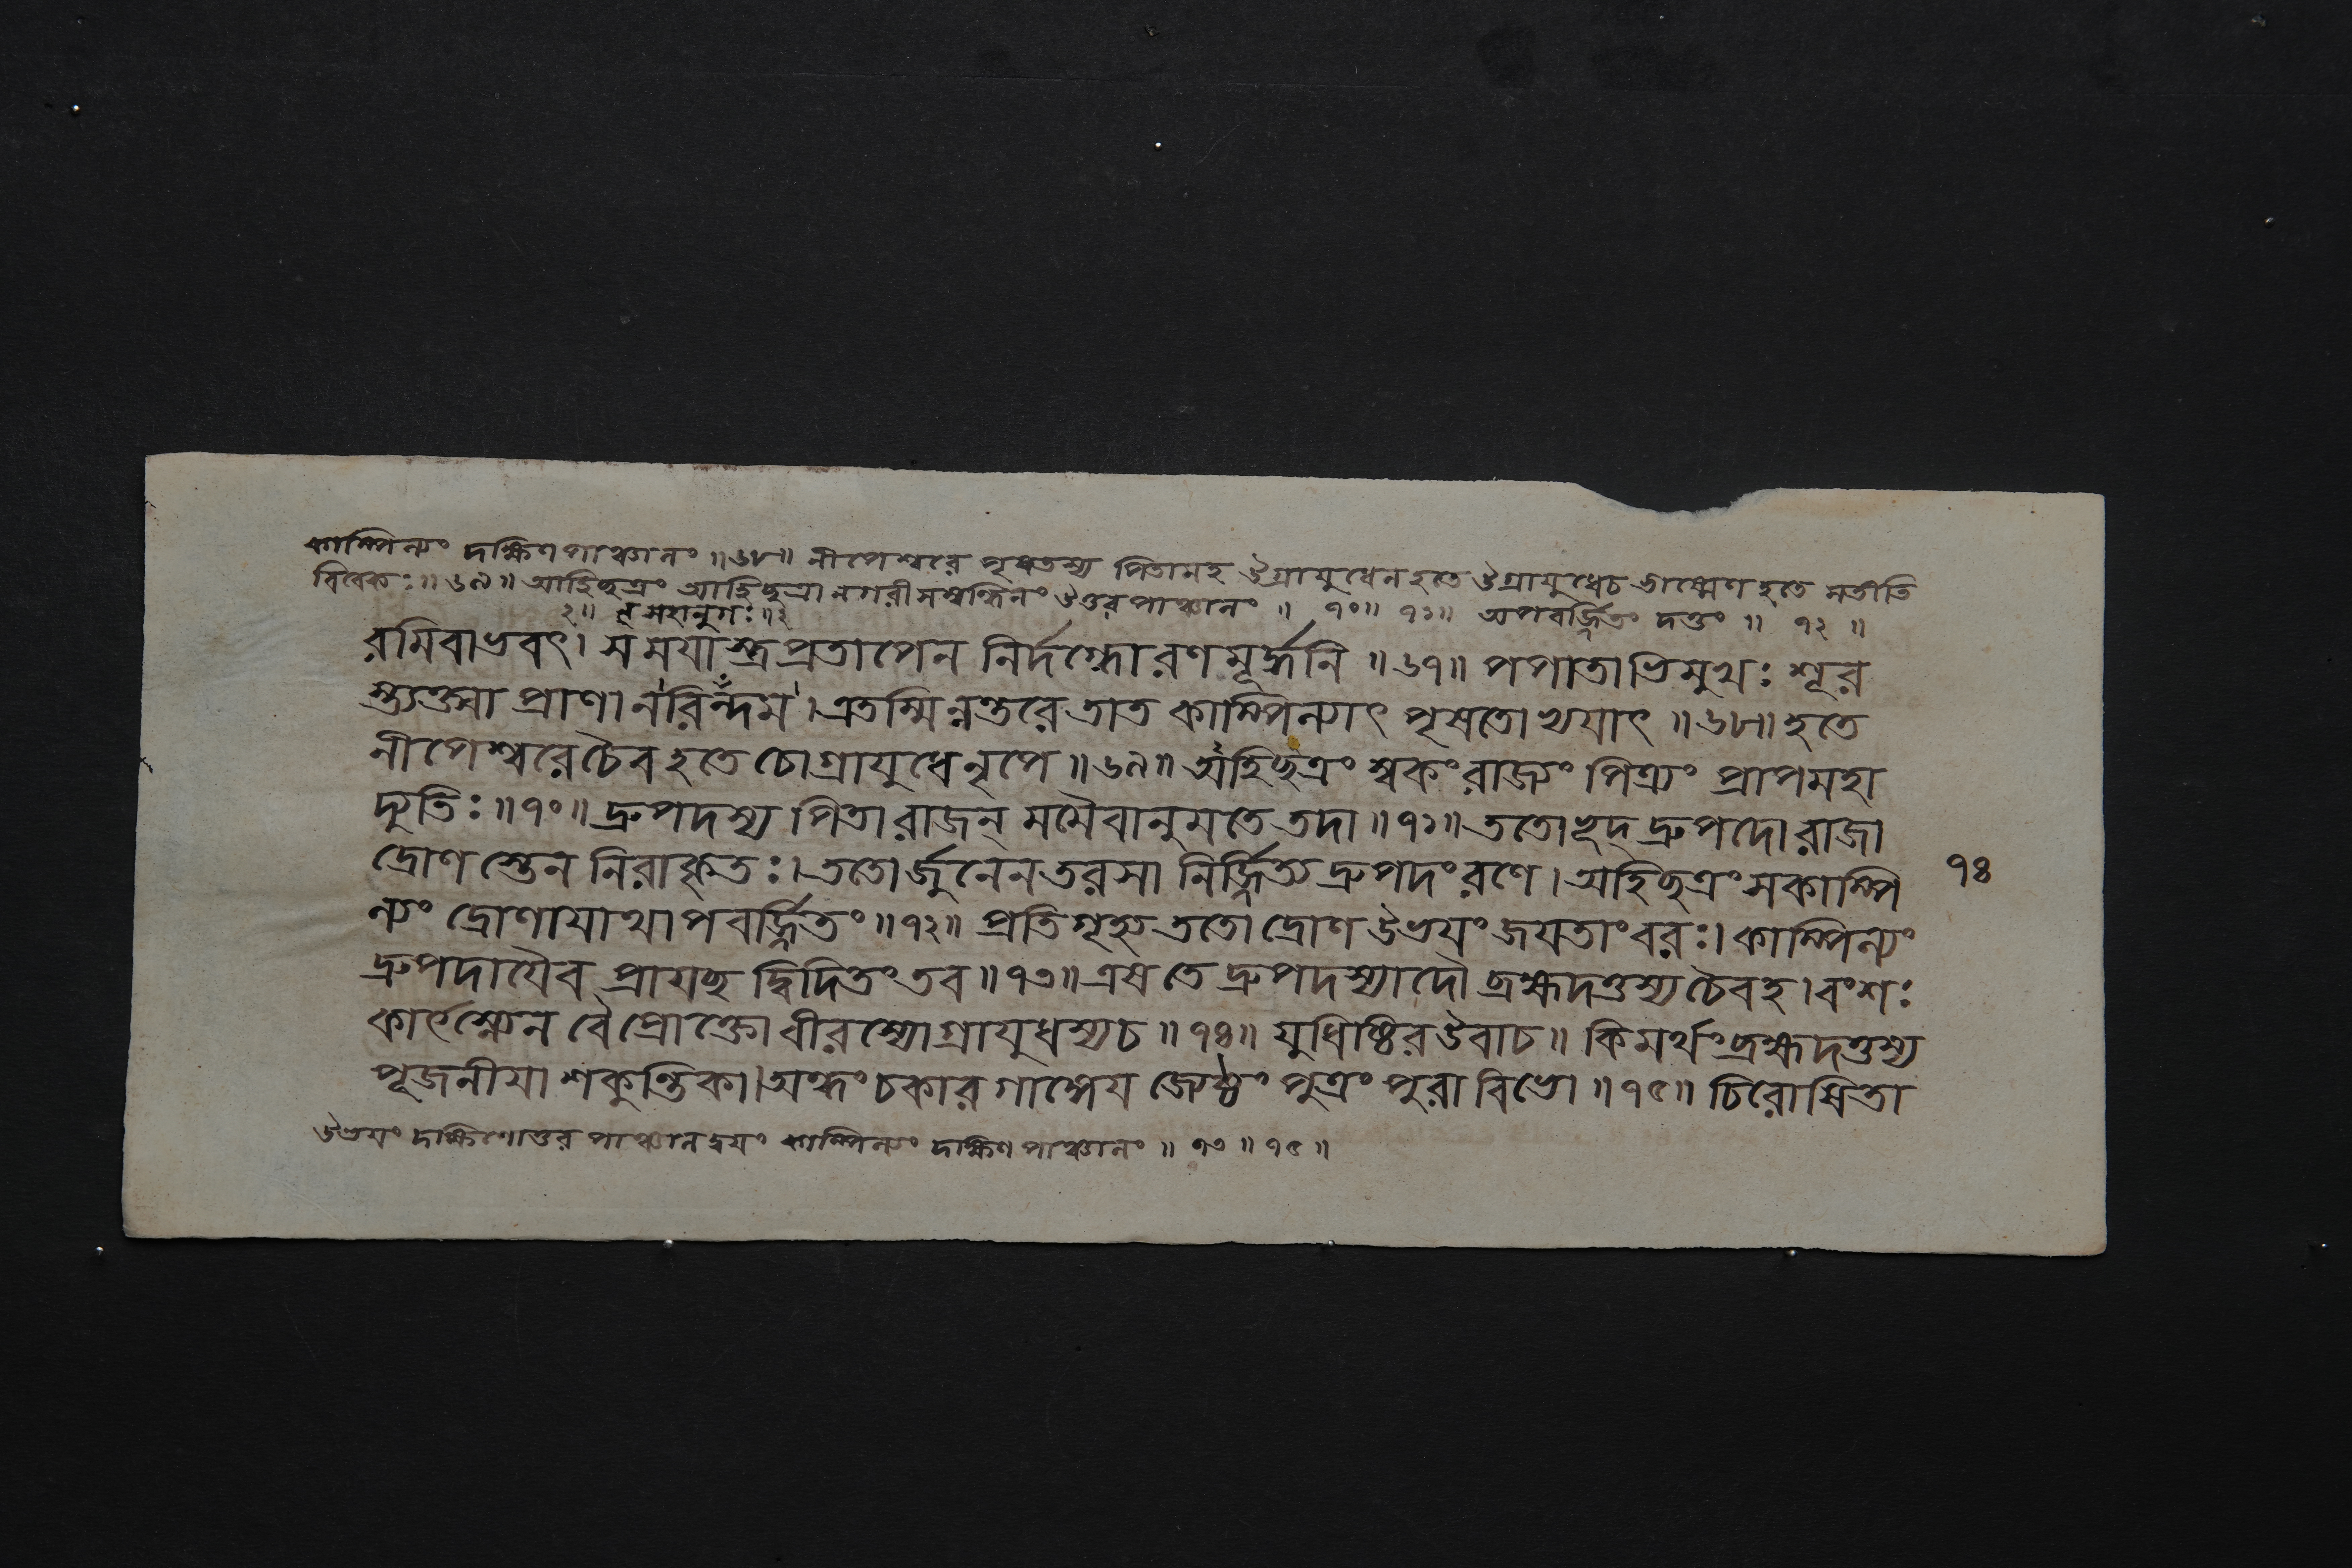 কাম্পিল্যং দক্ষিণপাঞ্চালং ॥৬৮॥ নীপেশ্বরে পৃষতস্য পিতামহ উগ্রাযুধেন হতে উগ্রাযুধেচ ভীষ্মেণ হতে সতীতি
বিবেকঃ ॥৬৯॥ আহিছত্রং আহিছত্রা নগরীসম্বন্ধিনং উত্তরপাঞ্চালং ॥ ৭০॥ ৭১॥ অপবর্জ্জিতং দত্তং ॥ ৭২ ॥
২॥ ল সহানুগঃ॥২
রমিবাভবৎ। স ময়াস্ত্রপ্রতাপেন নির্দগ্ধো রণমূর্দ্ধনি ॥৬৭॥ পপাতাভিমুখঃ শূর
স্ত্যক্ত্বা প্রাণানরিন্দম। এতস্মিন্নন্তরে তাত কাম্পিল্যাৎ পৃষতোভয়াৎ ॥৬৮॥ হতে
নীপেশ্বরে চৈব হতে চোগ্রাযুধে নৃপে ॥৬৯॥ আহিছত্রং স্বকং রাজ্যং পিত্র্যং প্রাপমহা
দ্যুতিঃ ॥৭০॥ দ্রুপদস্য পিতা রাজন্ মমৈবানুমতে তদা ॥৭১॥ ততোভূদ্ দ্রুপদো রাজা
দ্রোণস্তেন নিরাকৃতঃ। ততোর্জুনেন তরসা নির্জ্জিত্য দ্রুপদং রণে। অহিছত্রং সকাম্পি
৭৪
ল্যং দ্রোণাযাথাপবর্জ্জিতং ॥৭২॥ প্রতিগৃহ্য ততো দ্রোণ উভযং জযতাং বরঃ। কাম্পিল্যং
দ্রুপদাযৈব প্রাযছদ্বিদিতং তব ॥৭৩॥ এষ তে দ্রুপদস্যাদৌ ব্রহ্মদত্তস্য চৈব হ। বংশঃ
কার্ৎস্ন্যেন বৈ প্রোক্তো বীরস্যোগ্রাযুধস্য চ ॥৭৪॥ যুধিষ্ঠির উবাচ ॥ কিমর্থং ব্রহ্মদত্তস্য
পূজনীযা শকুন্তিকা। অন্ধং চকার গাঙ্গেয জ্যেষ্ঠং পুত্রং পুরা বিভো ॥৭৫॥ চিরোষিতা
উভযং দক্ষিণোত্তর পাঞ্চালদ্বযং কাম্পিল্যং দক্ষিণপাঞ্চালং ॥ ৭৩ ॥ ৭৫ ॥